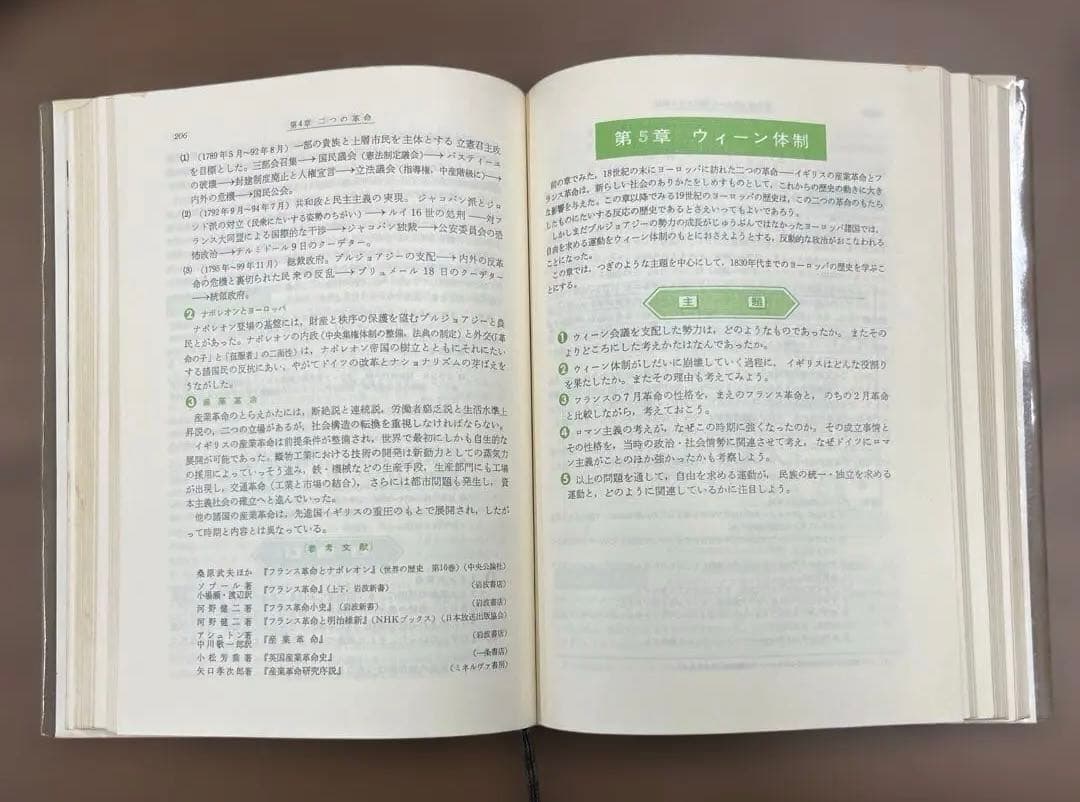 206
第4章 二つの革命
(1) (1789年5月~92年8月) 一部の貴族と上層市民を主体とする 立憲君主政
を目標とした。三部会召集→国民議会(憲法制定議会)→バスティーユ
の破壊→封建制度廃止と人権宣言→立法議会(指導権，中産階級に)→
内外の危機→国民公会。
(2) (1792年9月~94年7月) 共和政と民主主義の実現。ジャコバン派とジロ
ンド派の対立(民衆にたいする姿勢のちがい)→ルイ16世の処刑―対フ
ランス大同盟による国際的な干渉→ジャコバン独裁→公安委員会の恐
怖政治→テルミドール9日のクーデター。
(3) (1795年~99年11月) 総裁政府。ブルジョアジーの支配→内外の反革
命の危機と裏切られた民衆の反乱→ブリュメール18日のクーデター
→統領政府。
2 ナポレオンとヨーロッパ
ナポレオン登場の基盤には，財産と秩序の保護を望むブルジョアジーと農
民とがあった。ナポレオンの内政(中央集権体制の整備，法典の制定)と外交(「革
命の子」と「征服者」の二面性)は，ナポレオン帝国の樹立とともにそれにたい
する諸国民の反抗にあい，やがてドイツの改革とナショナリズムの芽ばえを
うながした。
3 産業革命
産業革命のとらえかたには，断絶説と連続説，労働者窮乏説と生活水準上
昇説の，二つの立場があるが，社会構造の転換を重視しなければならない。
イギリスの産業革命は前提条件が整備され，世界で最初にしかも自生的な
展開が可能であった。綿物工業における技術の開発は新動力としての蒸気力
の採用によっていっそう進み，鉄・機械などの生産手段，生産部門にも工場
が出現し，交通革命(工業と市場の結合)，さらには都市問題も発生し，資
本主義社会の確立へと進んでいった。
他の諸国の産業革命は，先進国イギリスの重圧のもとで展開され，したが
って時期と内容とは異なっている。
参考文献
桑原武夫ほか 『フランス革命とナポレオン』(世界の歴史 第10巻)(中央公論社)
ソブール著
小場瀬・渡辺訳 『フランス革命』(上下，岩波新書) (岩波書店)
河野健二著 『フラス革命小史』(岩波新書) (岩波書店)
河野健二著 『フランス革命と明治維新』(NHKブックス)(日本放送出版協会)
アシュトン著
中川敬一郎訳 『産業革命』 (岩波書店)
小松芳喬著 『英国産業革命史』 (一条書店)
矢口孝次郎著 『産業革命研究序説』 (ミネルヴァ書房)
第5章 ウィーン体制
前の章でみた，18世紀の末にヨーロッパに訪れた二つの革命――イギリスの産業革命とフ
ランス革命は，新らしい社会のありかたをしめすものとして，これからの歴史の動きに大き
な影響を与えた。この章以降でみる19世紀のヨーロッパの歴史は，この二つの革命のもたら
したものにたいする反応の歴史であるとさえいってもよいであろう。
しかしまだブルジョアジーの勢力の成長がじゅうぶんではなかったヨーロッパ諸国では，
自由を求める運動をウィーン体制のもとにおさえようとする，反動的な政治がおこなわれる
ことになった。
この章では，つぎのような主題を中心にして，1830年代までのヨーロッパの歴史を学ぶこ
とにする。
主題
1 ウィーン会議を支配した勢力は，どのようなものであったか。またその
よりどころにした考えかたはなんであったか。
2 ウィーン体制がしだいに崩壊していく過程に，イギリスはどんな役割り
を果たしたか。またその理由も考えてみよう。
3 フランスの7月革命の性格を，まえのフランス革命と，のちの2月革命
と比較しながら，考えておこう。
4 ロマン主義の考えが，なぜこの時期に強くなったのか。その成立事情と
その性格を，当時の政治・社会情勢に関連させて考え，なぜドイツにロマ
ン主義がことのほか強かったかも考察しよう。
5 以上の問題を通して，自由を求める運動が，民族の統一・独立を求める
運動と，どのように関連しているかに注目しよう。